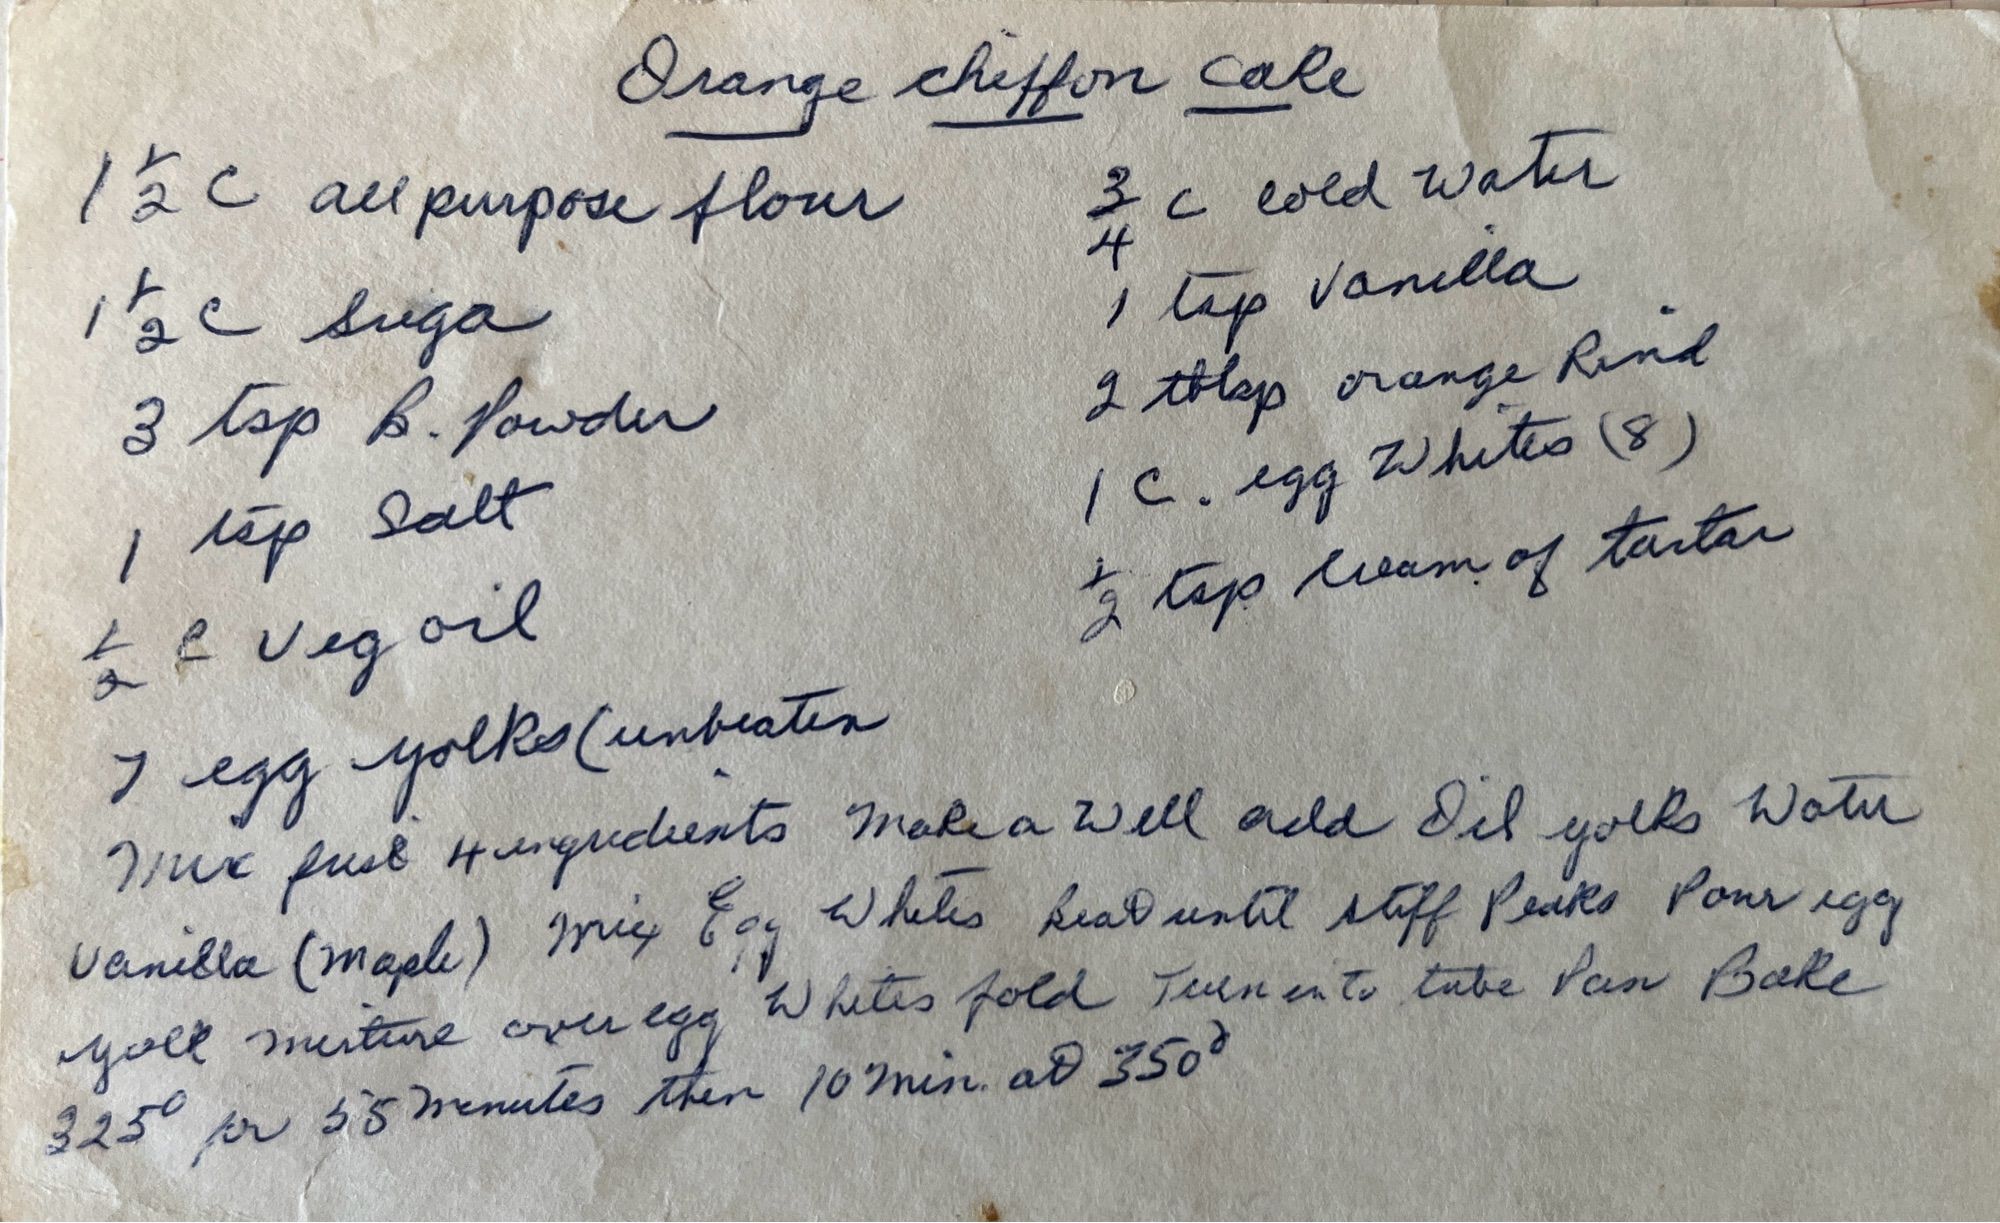 Orange chiffon cake
1 1/2 C all purpose flour
1 1/2 C Suga
3 tsp B. Powder
1 tsp Salt
1/2 C Veg oil
7 egg yolks (unbeaten
3/4 C cold Water
1 tsp Vanilla
2 tblsp orange Rind
1 C. egg Whites (8)
1/2 tsp cream of tartar
Mix first 4 ingredients Make a Well add Oil yolks Water
Vanilla (Maple) Mix Egg Whites beat until stiff Peaks Pour egg
yolk mixture over egg Whites fold Turn into tube Pan Bake
325° for 55 Minutes then 10 Min. at 350°